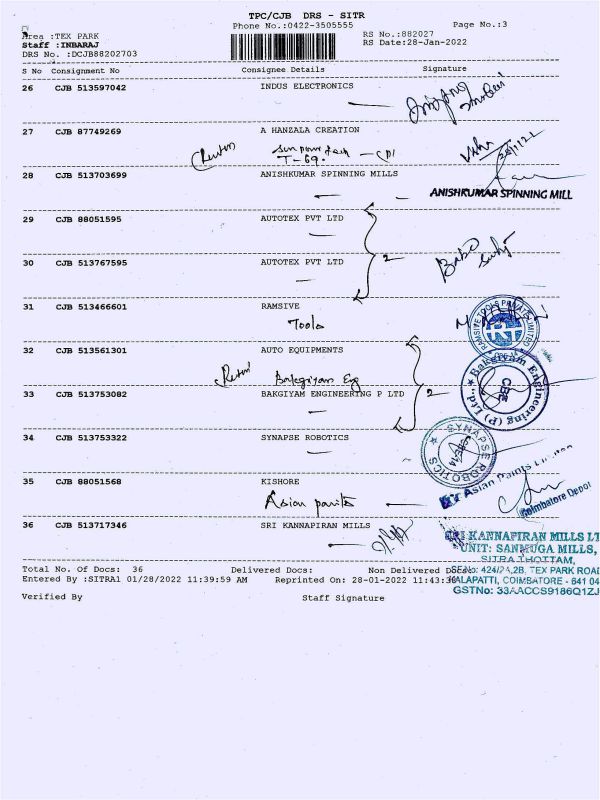 TPC/CJB DRS - SITR
Phone No.:0422-3505555
Page No.:3
Area :TEX PARK
RS No.:882027
Staff :INBARAJ
RS Date:28-Jan-2022
DRS No. :DCJB88202703
S No Consignment No Consignee Details Signature
26 CJB 513597042 INDUS ELECTRONICS
27 CJB 87749269 A HANZALA CREATION
T-69.
28 CJB 513703699 ANISHKUMAR SPINNING MILLS
ANISHKUMAR SPINNING MILL
29 CJB 88051595 AUTOTEX PVT LTD
2
30 CJB 513767595 AUTOTEX PVT LTD
31 CJB 513466601 RAMSIVE
Tools
RAMSIVE TOOLS PRIVATE LIMITED
RT
32 CJB 513561301 AUTO EQUIPMENTS
Bakgiyam Eng
2
Bakgiyam Engineering (P) Ltd.,
CBE
33 CJB 513753082 BAKGIYAM ENGINEERING P LTD
34 CJB 513753322 SYNAPSE ROBOTICS
SYNAPSE ROBOTICS
35 CJB 88051568 KISHORE
Asian paints
Asian Paints Limited
Coimbatore Depot
36 CJB 513717346 SRI KANNAPIRAN MILLS
SRI KANNAPIRAN MILLS LT
UNIT: SANMUGA MILLS,
SITRA THOTTAM,
Total No. Of Docs: 36 Delivered Docs: Non Delivered Docs:
SF.No: 424/2A,2B, TEX PARK ROAD
Entered By :SITRA1 01/28/2022 11:39:59 AM Reprinted On: 28-01-2022 11:43:30
KALAPATTI, COIMBATORE - 641 04
GSTNo: 33AACCS9186Q1ZJ
Verified By Staff Signature